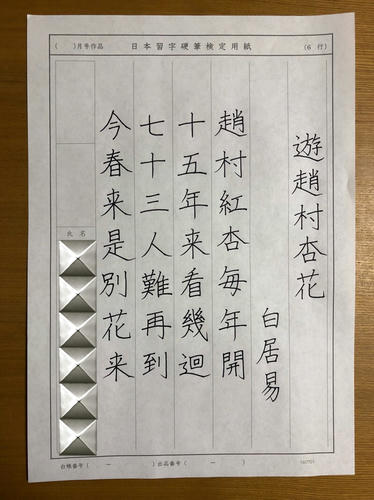 ( )月号作品 日本習字硬筆検定用紙 (6 行)
遊趙村杏花
白居易
趙村紅杏毎年開
十五年来看幾迴
七十三人難再到
今春来是別花来
氏名
台帳番号 ( － ) 出品番号 ( － )